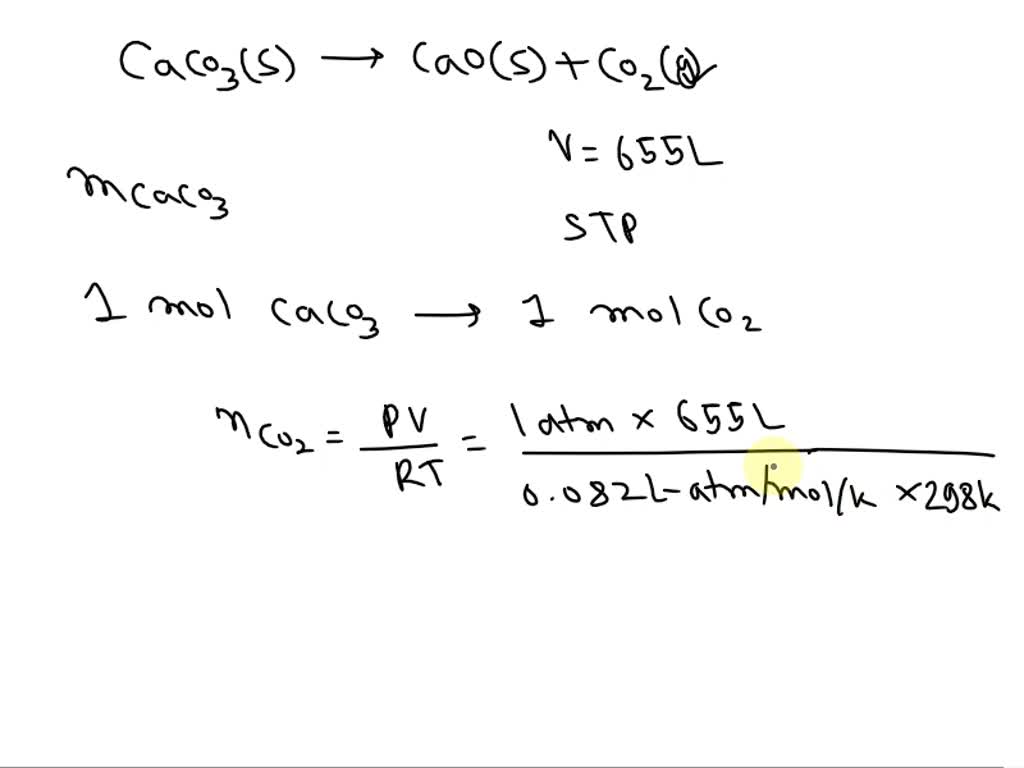 CaCO3(S) → CaO(S) + CO2(g)
V = 655L
mCaCO3
STP
1 mol CaCO3 → 1 mol CO2
nCO2 = PV/RT = 1 atm × 655L / 0.082L-atm/mol/k × 298k